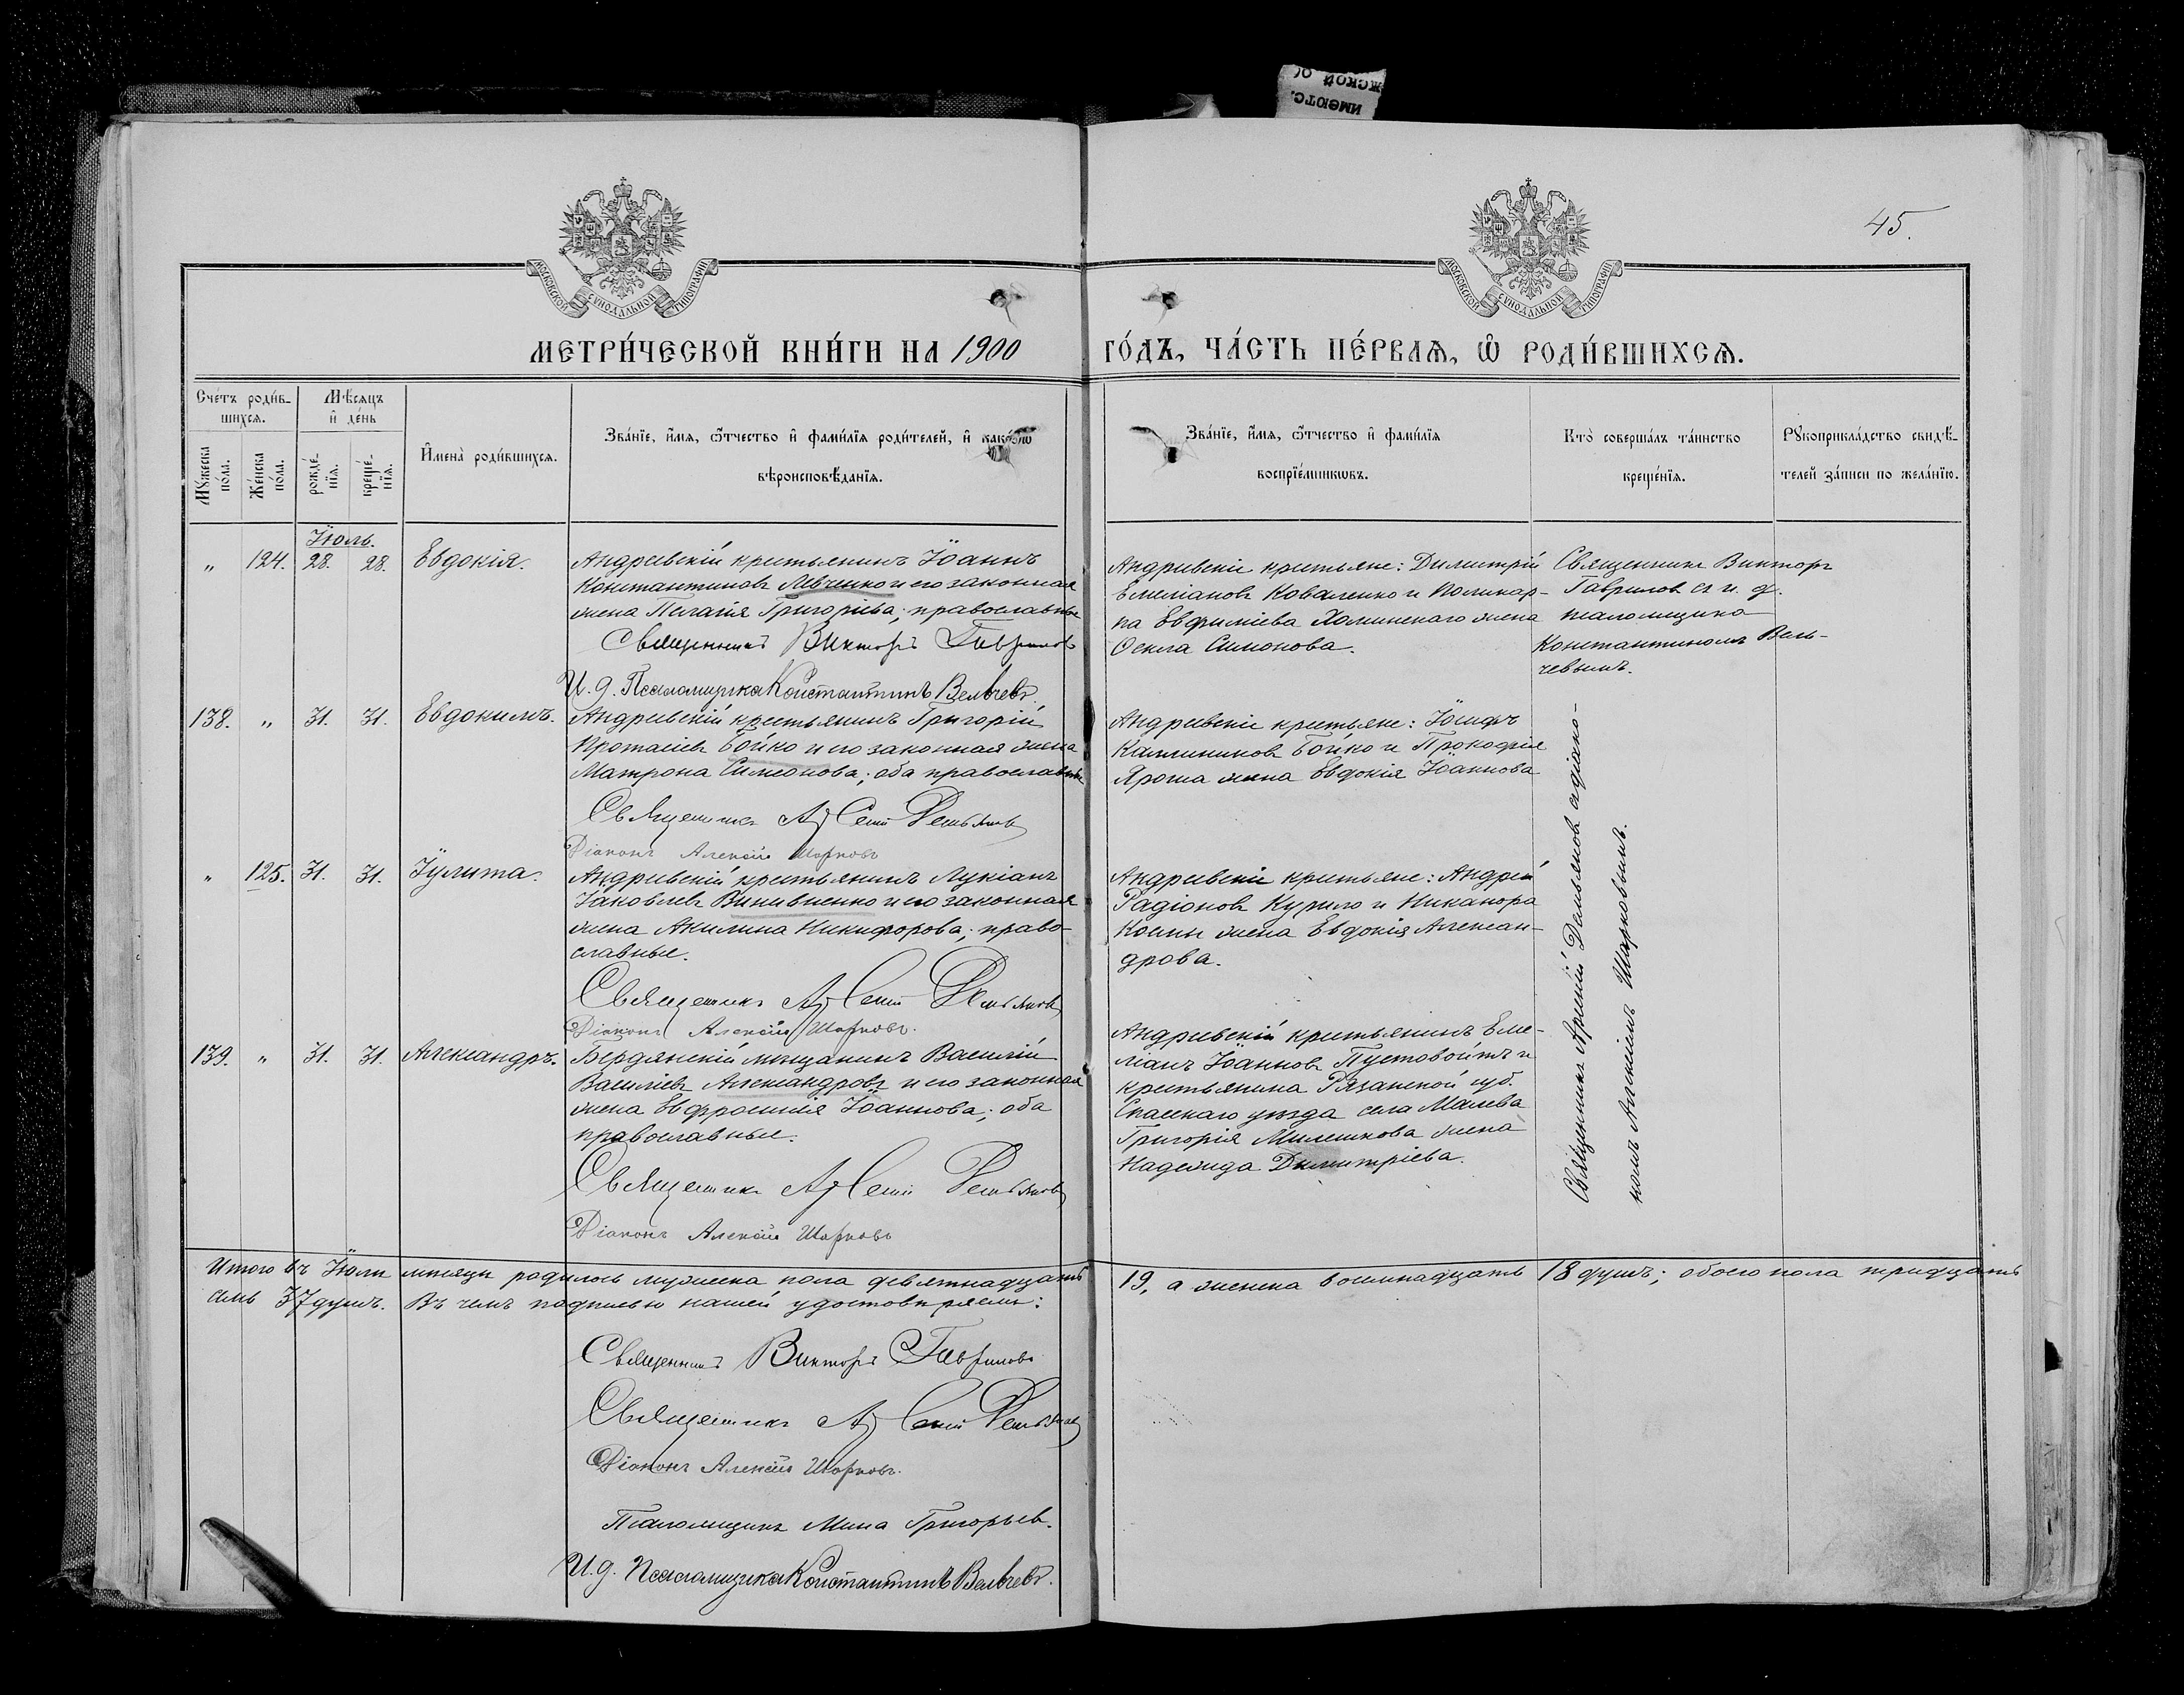 ИМѢЮТС.
ЖСКОЙ ОС
45.
МОСКОВСКОЙ СѴНОДАЛЬНОЙ ТИПОГРАФІИ
МОСКОВСКОЙ СѴНОДАЛЬНОЙ ТИПОГРАФІИ
МЕТРИ́ЧЕСКОЙ КНИ́ГИ НА 1900 ГО́ДЪ, ЧА́СТЬ ПЕ́РВАѦ, Ѽ РОДИ́ВШИХСѦ.
Сче́тъ роди́в-
шихсѧ.
Мѣ́сѧцъ
и҆ де́нь
Мꙋ́жеска
по́ла.
Же́нска
по́ла.
рожде́-
нїѧ.
креще́-
нїѧ.
И҆мена̀ роди́вшихсѧ.
Зва́нїе, и҆́мѧ, ѻ҆́тчество и҆ фами́лїѧ роди́телей, и҆ како́гѡ
вѣроисповѣ́данїѧ.
Зва́нїе, и҆́мѧ, ѻ҆́тчество и҆ фами́лїѧ
воспрїе́мникѡвъ.
Кто̀ соверша́лъ та́инство
креще́нїѧ.
Рꙋкоприкла́дство свидѣ́-
телей за́писи по жела́нїю.
Іюль.
" 124. 28. 28. Евдокія.
Андреевскій крестьянинъ Іоаннъ
Константиновъ Левченко и его законная
жена Пелагія Григоріева; православные
Священникъ Викторъ Гавриловъ
И. д. Псаломщика Константинъ Вельчевъ.
Андреевскіе крестьяне: Димитрій
Емеліановъ Коваленко и Поликар-
па Евфиміева Холминскаго жена
Ѳекла Симонова.
Священникъ Викторъ
Гавриловъ съ и. д.
псаломщика
Константиномъ Вель-
чевымъ.
138. " 31. 31. Евдокимъ.
Андреевскій крестьянинъ Григорій
Протасіевъ Бойко и его законная жена
Матрона Симеонова; оба православные
Священникъ Арсеній Демьяновъ
Діаконъ Алексій Шарковъ
Андреевскіе крестьяне: Іосифъ
Каллиниковъ Бойко и Прокофія
Яроша жена Евдокія Іоаннова
Священникъ Арсеній Демьяновъ съ діако-
номъ Алексіемъ Шарковымъ.
" 125. 31. 31. Іулита.
Андреевскій крестьянинъ Лукіанъ
Іаковлевъ Винивненко и его законная
жена Акилина Никифорова; право-
славные.
Священникъ Арсеній Демьяновъ
Діаконъ Алексій Шарковъ.
Андреевскіе крестьяне: Андрей
Радіоновъ Курило и Никанора
Косты жена Евдокія Алексан-
дрова.
139. " 31. 31. Александръ.
Бердянскій мѣщанинъ Василій
Василіевъ Александровъ и его законная
жена Евфросинія Іоаннова; оба
православные.
Священникъ Арсеній Демьяновъ
Діаконъ Алексій Шарковъ
Андреевскій крестьянинъ Еме-
ліанъ Іоанновъ Пустовойтъ и
крестьянина Рязанской губ.
Спасскаго уѣзда села Малева
Григорія Милешкова жена
Надежда Димитріева.
Итого въ Іюлѣ мѣсяцѣ родилось мужеска пола девятнадцать 19, а женска восемнадцать 18 душъ; обоего пола тридцать
семь 37 душъ. Въ чемъ подписью нашей удостовѣряемъ:
Священникъ Викторъ Гавриловъ
Священникъ Арсеній Демьяновъ
Діаконъ Алексій Шарковъ.
Псаломщикъ Мина Григорьев.
И. д. Псаломщика Константинъ Вельчевъ.